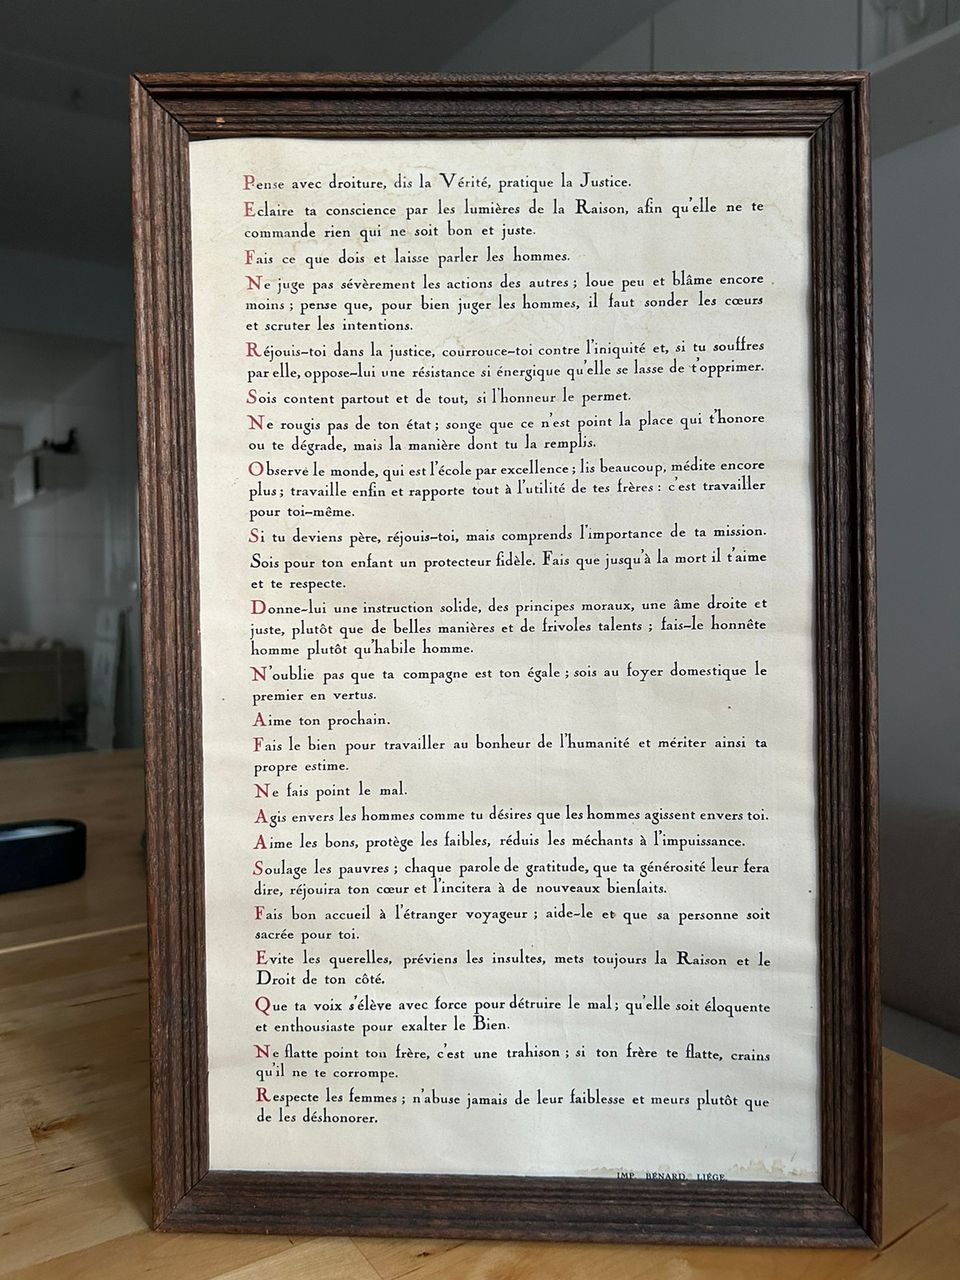 Pense avec droiture, dis la Vérité, pratique la Justice.
Eclaire ta conscience par les lumières de la Raison, afin qu'elle ne te
commande rien qui ne soit bon et juste.
Fais ce que dois et laisse parler les hommes.
Ne juge pas sévèrement les actions des autres ; loue peu et blâme encore
moins ; pense que, pour bien juger les hommes, il faut sonder les cœurs
et scruter les intentions.
Réjouis-toi dans la justice, courrouce-toi contre l'iniquité et, si tu souffres
par elle, oppose-lui une résistance si énergique qu'elle se lasse de t'opprimer.
Sois content partout et de tout, si l'honneur le permet.
Ne rougis pas de ton état ; songe que ce n'est point la place qui t'honore
ou te dégrade, mais la manière dont tu la remplis.
Observe le monde, qui est l'école par excellence ; lis beaucoup, médite encore
plus ; travaille enfin et rapporte tout à l'utilité de tes frères : c'est travailler
pour toi-même.
Si tu deviens père, réjouis-toi, mais comprends l'importance de ta mission.
Sois pour ton enfant un protecteur fidèle. Fais que jusqu'à la mort il t'aime
et te respecte.
Donne-lui une instruction solide, des principes moraux, une âme droite et
juste, plutôt que de belles manières et de frivoles talents ; fais-le honnête
homme plutôt qu'habile homme.
N'oublie pas que ta compagne est ton égale ; sois au foyer domestique le
premier en vertus.
Aime ton prochain.
Fais le bien pour travailler au bonheur de l'humanité et mériter ainsi ta
propre estime.
Ne fais point le mal.
Agis envers les hommes comme tu désires que les hommes agissent envers toi.
Aime les bons, protège les faibles, réduis les méchants à l'impuissance.
Soulage les pauvres ; chaque parole de gratitude, que ta générosité leur fera
dire, réjouira ton cœur et l'incitera à de nouveaux bienfaits.
Fais bon accueil à l'étranger voyageur ; aide-le et que sa personne soit
sacrée pour toi.
Evite les querelles, préviens les insultes, mets toujours la Raison et le
Droit de ton côté.
Que ta voix s'élève avec force pour détruire le mal ; qu'elle soit éloquente
et enthousiaste pour exalter le Bien.
Ne flatte point ton frère, c'est une trahison ; si ton frère te flatte, crains
qu'il ne te corrompe.
Respecte les femmes ; n'abuse jamais de leur faiblesse et meurs plutôt que
de les déshonorer.
IMP. BÉNARD, LIÉGE.